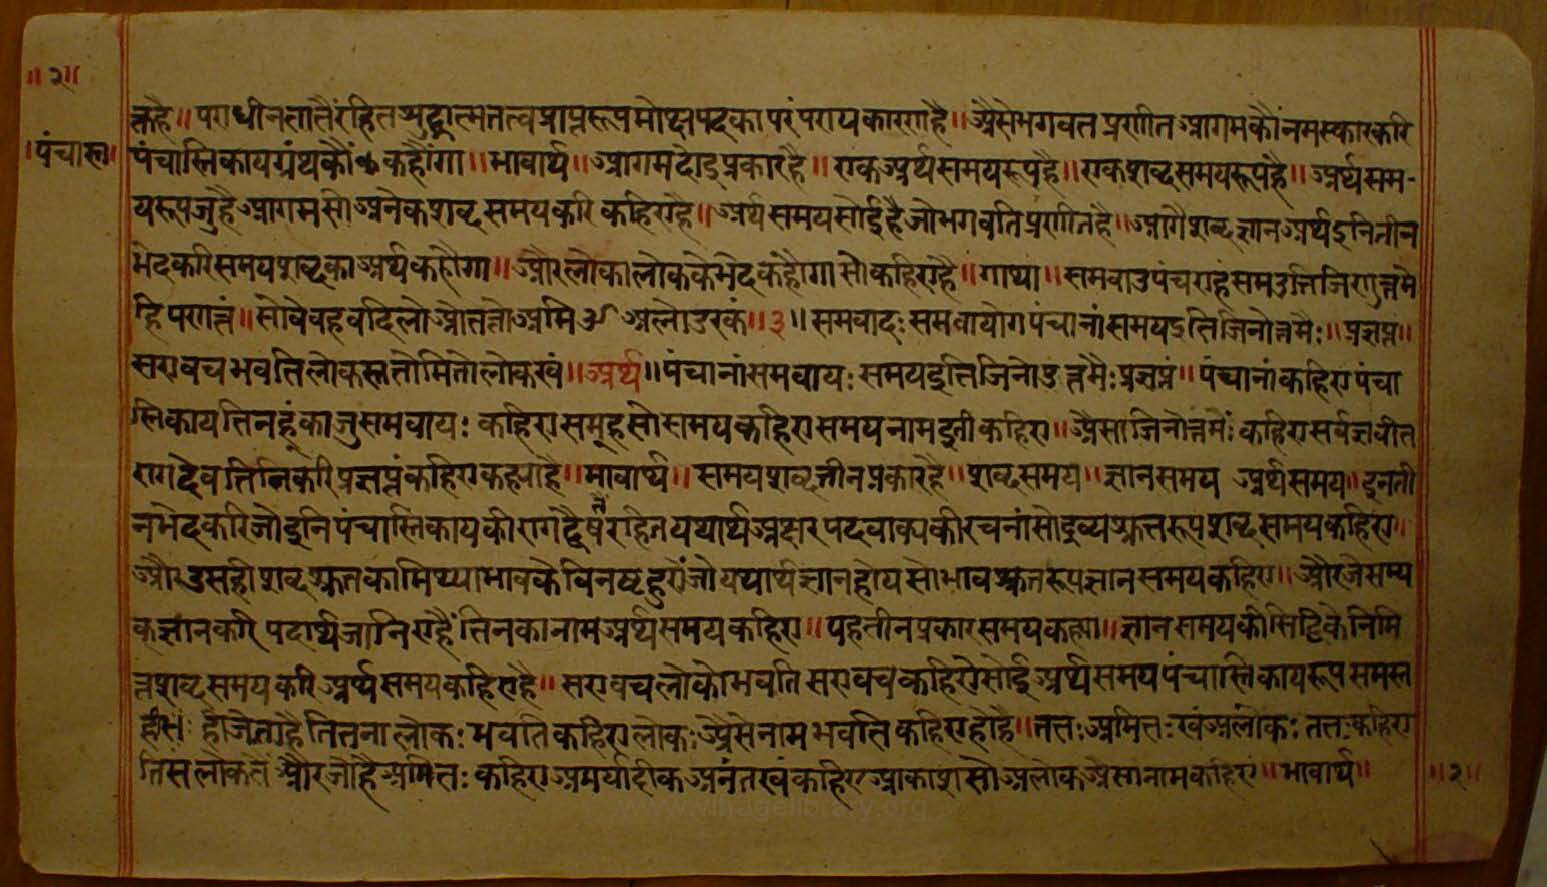 ॥२॥
॥पंचास्त॥
त्कहै॥ पराधीनतातैंरहितशुद्धात्मतत्वप्राप्तरूपमोक्षपदकापरंपरायकारणहै॥ अैसेभगवतप्रणीतआगमकौंनमस्कारकरि
पंचास्तिकायग्रंथकौं कहौंगा॥ भावार्थ॥ आगमदोइप्रकारहै॥ एकअर्थसमयरूपहै॥ एकशब्दसमयरूपहै॥ अर्थसम-
यरूपजुहैआगमसोअनेकशब्दसमयकरिकहिएहै॥ अर्थसमयसोईहैजोभगवतिप्रणीतहै॥ आगैशब्दज्ञानअर्थइनितीन
भेदकरिसमयशब्दकाअर्थकहौगा॥ औरलोकालोककेभेदकहौगासोकहिएहै॥ गाथा॥ समवाउपंचएहंसमउत्तिजिणुत्तमे
हिपणत्तं॥ सोचेवहवदिलोओतत्तोअमिओअलोउरकं॥३॥ समवादः समवायोगपंचानांसमयइतिजिनोत्तमैः॥ प्रज्ञप्तं॥
सएवचभवंतिलोकस्ततोमितोलोकखं॥ अर्थ॥ पंचानांसमवायः समयइतिजिनोउत्तमैः प्रज्ञप्तं॥ पंचानांकहिएपंचा
स्तिकायतिनहूंकाजुसमवायः कहिएसमूहसोसमयकहिएसमयनामइतीकहिए॥ अैसाजिनोत्तमैः कहिएसर्वज्ञवीत
रागदेवतिनिकरिप्रज्ञप्तंकहिएकह्याहै॥ भावार्थ॥ समयशब्दतीनप्रकारहै॥ शब्दसमय॥ ज्ञानसमय अर्थसमय॥ इनती
नभेदकरिजोइनिपंचास्तिकायकीरागद्वेषतैरहितयथार्थअक्षरपदवाक्यकीरचनांसोद्रव्यश्रुतरूपशब्दसमयकहिए॥
औरउसहीशब्दश्रुतकामिथ्याभावकेविनष्टहुऐंजोयथार्थज्ञानहोयसोभावश्रुतरूपज्ञानसमयकहिए॥ औरजेसम्य
कज्ञानकरिपदार्थजानिएहैंतिनकानामअर्थसमयकहिए॥ यहतीनप्रकारसमयकह्या॥ ज्ञानसमयकीसिद्धिकेनिमि
त्तशब्दसमयकरिअर्थसमयकहिएहै॥ सएवचलोकोभवतिसएवचकहिऐसोईअर्थसमयपंचास्तिकायरूपसमस्त
हैजेताहैतितनालोकः भवतिकहिएलोकःअैसेनामभवतिकहिएहोहै॥ ततःअमितःखंअलोकः ततःकहिए
तिसलोकतैऔरजोहैअमितः कहिएअमर्यादीकअनंतखंकहिएआकाशसोअलोकअैसानामकहिए॥ भावार्थ॥
॥२॥